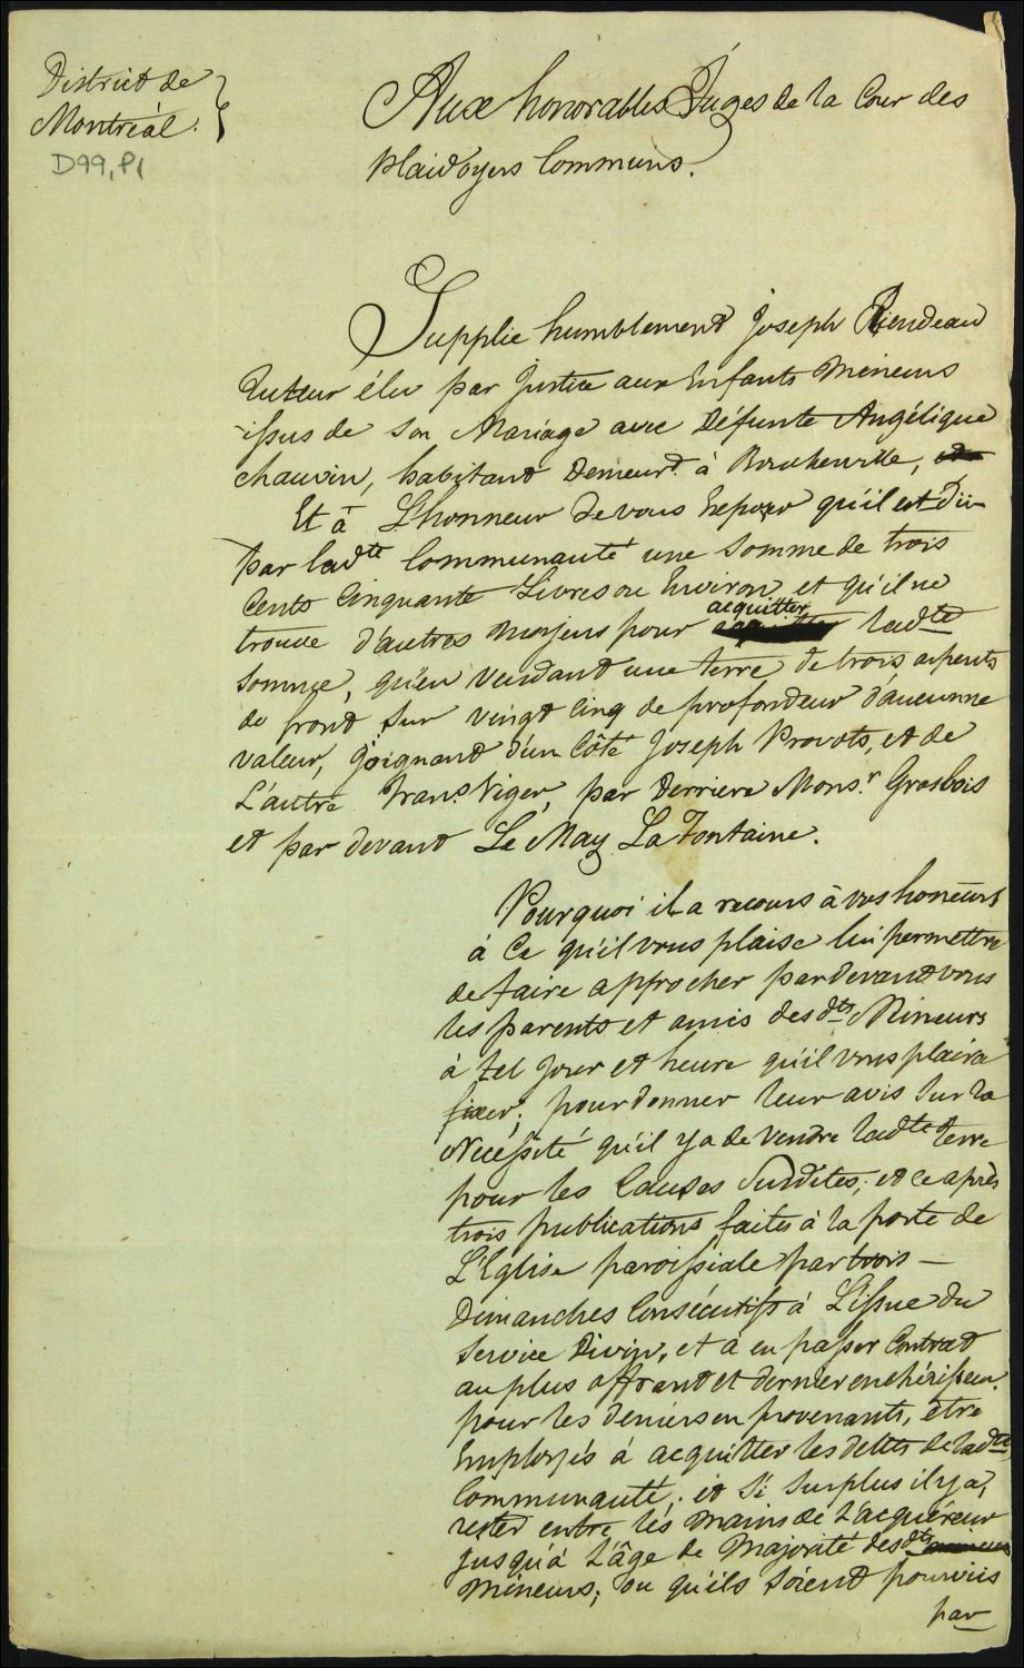 District de
Montréal. }
D99, P1
Aux honorables Juges de la Cour des
plaidoyers Communs.
Supplie humblement Joseph Riendeau
Tuteur élu par Justice aux Enfants Mineurs
issus de Son Mariage avec Défunte Angélique
chauvin, habitant Demeurt. à Boucherville,
Et à L'honneur de vous Exposer qu'il est Dû
par ladte Communauté une Somme de trois
Cents Cinquante Livres ou Environ, et qu'il ne
trouve d'autres moyens pour acquitter ladte
Somme, qu'en Vendant une terre de trois arpents
de front sur vingt Cinq de profondeur d'aucunne
valeur, joignant d'un Côté Joseph Provots, et de
L'autre Frans. Viger, par Derriere Monsr. Grosbois
et par devant Le May La Fontaine.
Pourquoi il a recours à vos honeurs
à Ce qu'il vous plaise lui permettre
de faire approcher pardevant vous
les parents et amis des dts Mineurs
à tel jour et heure qu'il vous plaira
fixer; pour donner leur avis Sur la
Nécessité qu'il y a de Vendre ladte terre
pour les Causes Susdites; et ce après
trois publications faites à la porte de
L'Eglise paroissiale par trois —
Dimanches Consécutifs à L'issue du
Service Divin, et à en passer Contrat
au plus offrant et dernier enchérisseur.
pour les deniers en provenants, être
Employés à acquitter les dettes de ladte
Communauté; et Si Surplus il y a,
rester entre les mains de L'acquéreur
jusqu'à L'âge de Majorité des dts
Mineurs; ou qu'ils Soient pourvus
par